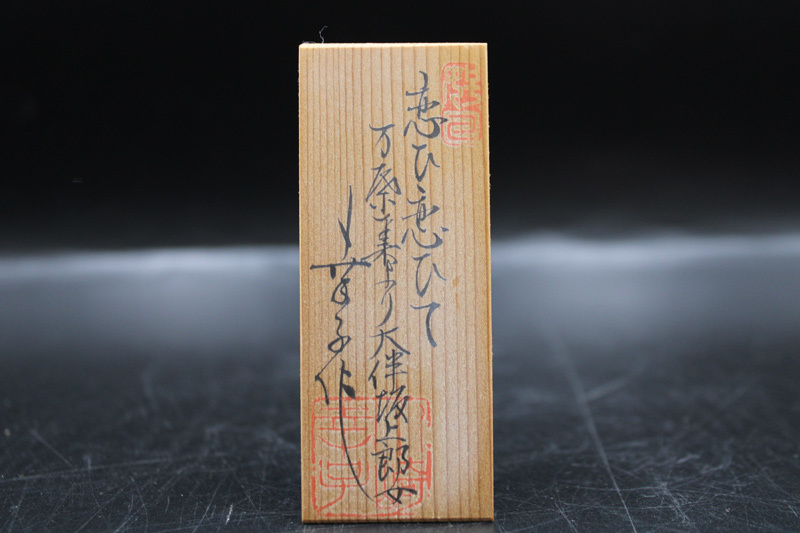 恋ひ恋ひて
万葉集より大伴坂上郎女
子作